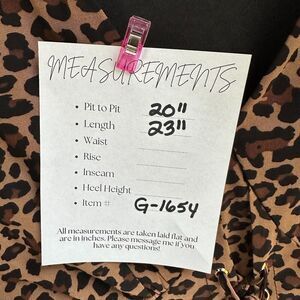 MEASUREMENTS
• Pit to Pit 20"
• Length 23"
• Waist
• Rise
• Inseam
• Heel Height
• Item # G-1654
All measurements are taken laid flat and
are in inches. Please message me if you
have any questions!